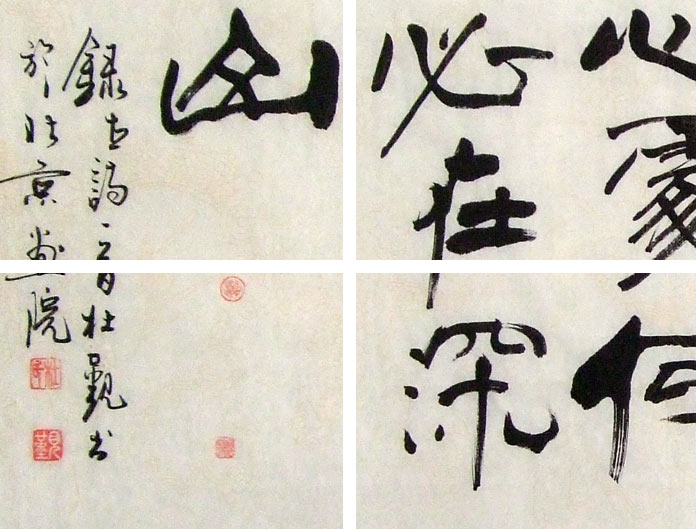 心處何
必在深
山
錄古詩一首杜觀书
於北京畫院